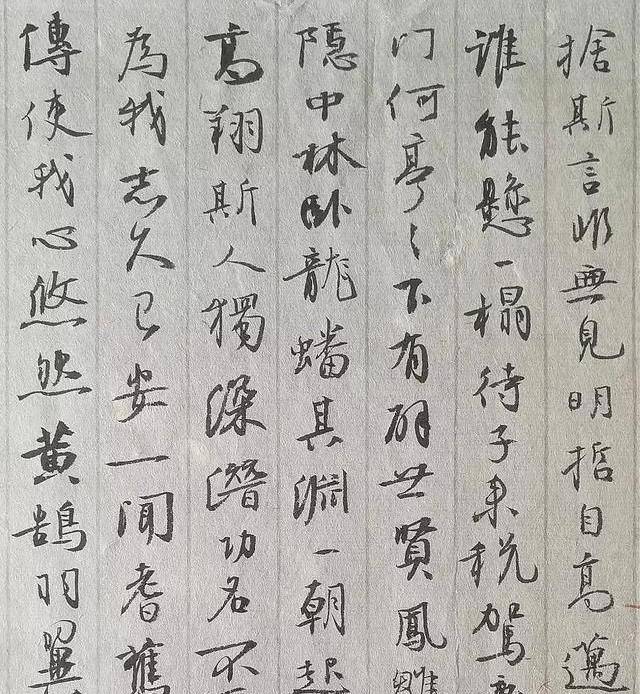 捨斯言無見明哲自高邁
誰能懸一榻待子來稅駕
门何亭々下有辟世賢鳳雛
隱中林卧龍蟠其淵一朝起
高翔斯人獨深潛功名不
為我志久已安一聞耆舊
傳使我心悠然黃鵠羽翼